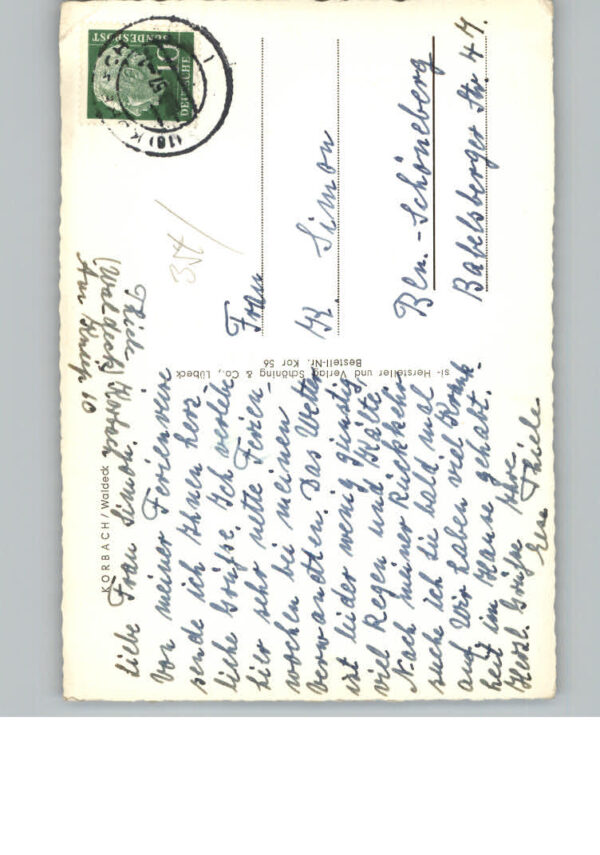 Thiele
(Waldeck) Korbach
Am Kniep 10
KORBACH / Waldeck
Liebe Frau Simon.
Von meiner Ferienreise
sende ich Ihnen herz-
liche Grüße. Ich verlebe
hier sehr nette Ferien-
wochen bei meinen
Verwandten. Das Wetter
ist leider wenig günstig,
viel Regen und Kälte.
Nach meiner Rückkehr
suche ich Sie bald mal
auf. Wir haben viel Krank
heit im Hause gehabt.
Herzl. Grüße Ihre
Thiele
si- Hersteller und Verlag Schöning & Co., Lübeck
Bestell-Nr. Kor 56
DEUTSCHE
BUNDESPOST
10
(16) K
Frau
Simon
Bln.-Schöneberg
Babelsberger Str. 49.